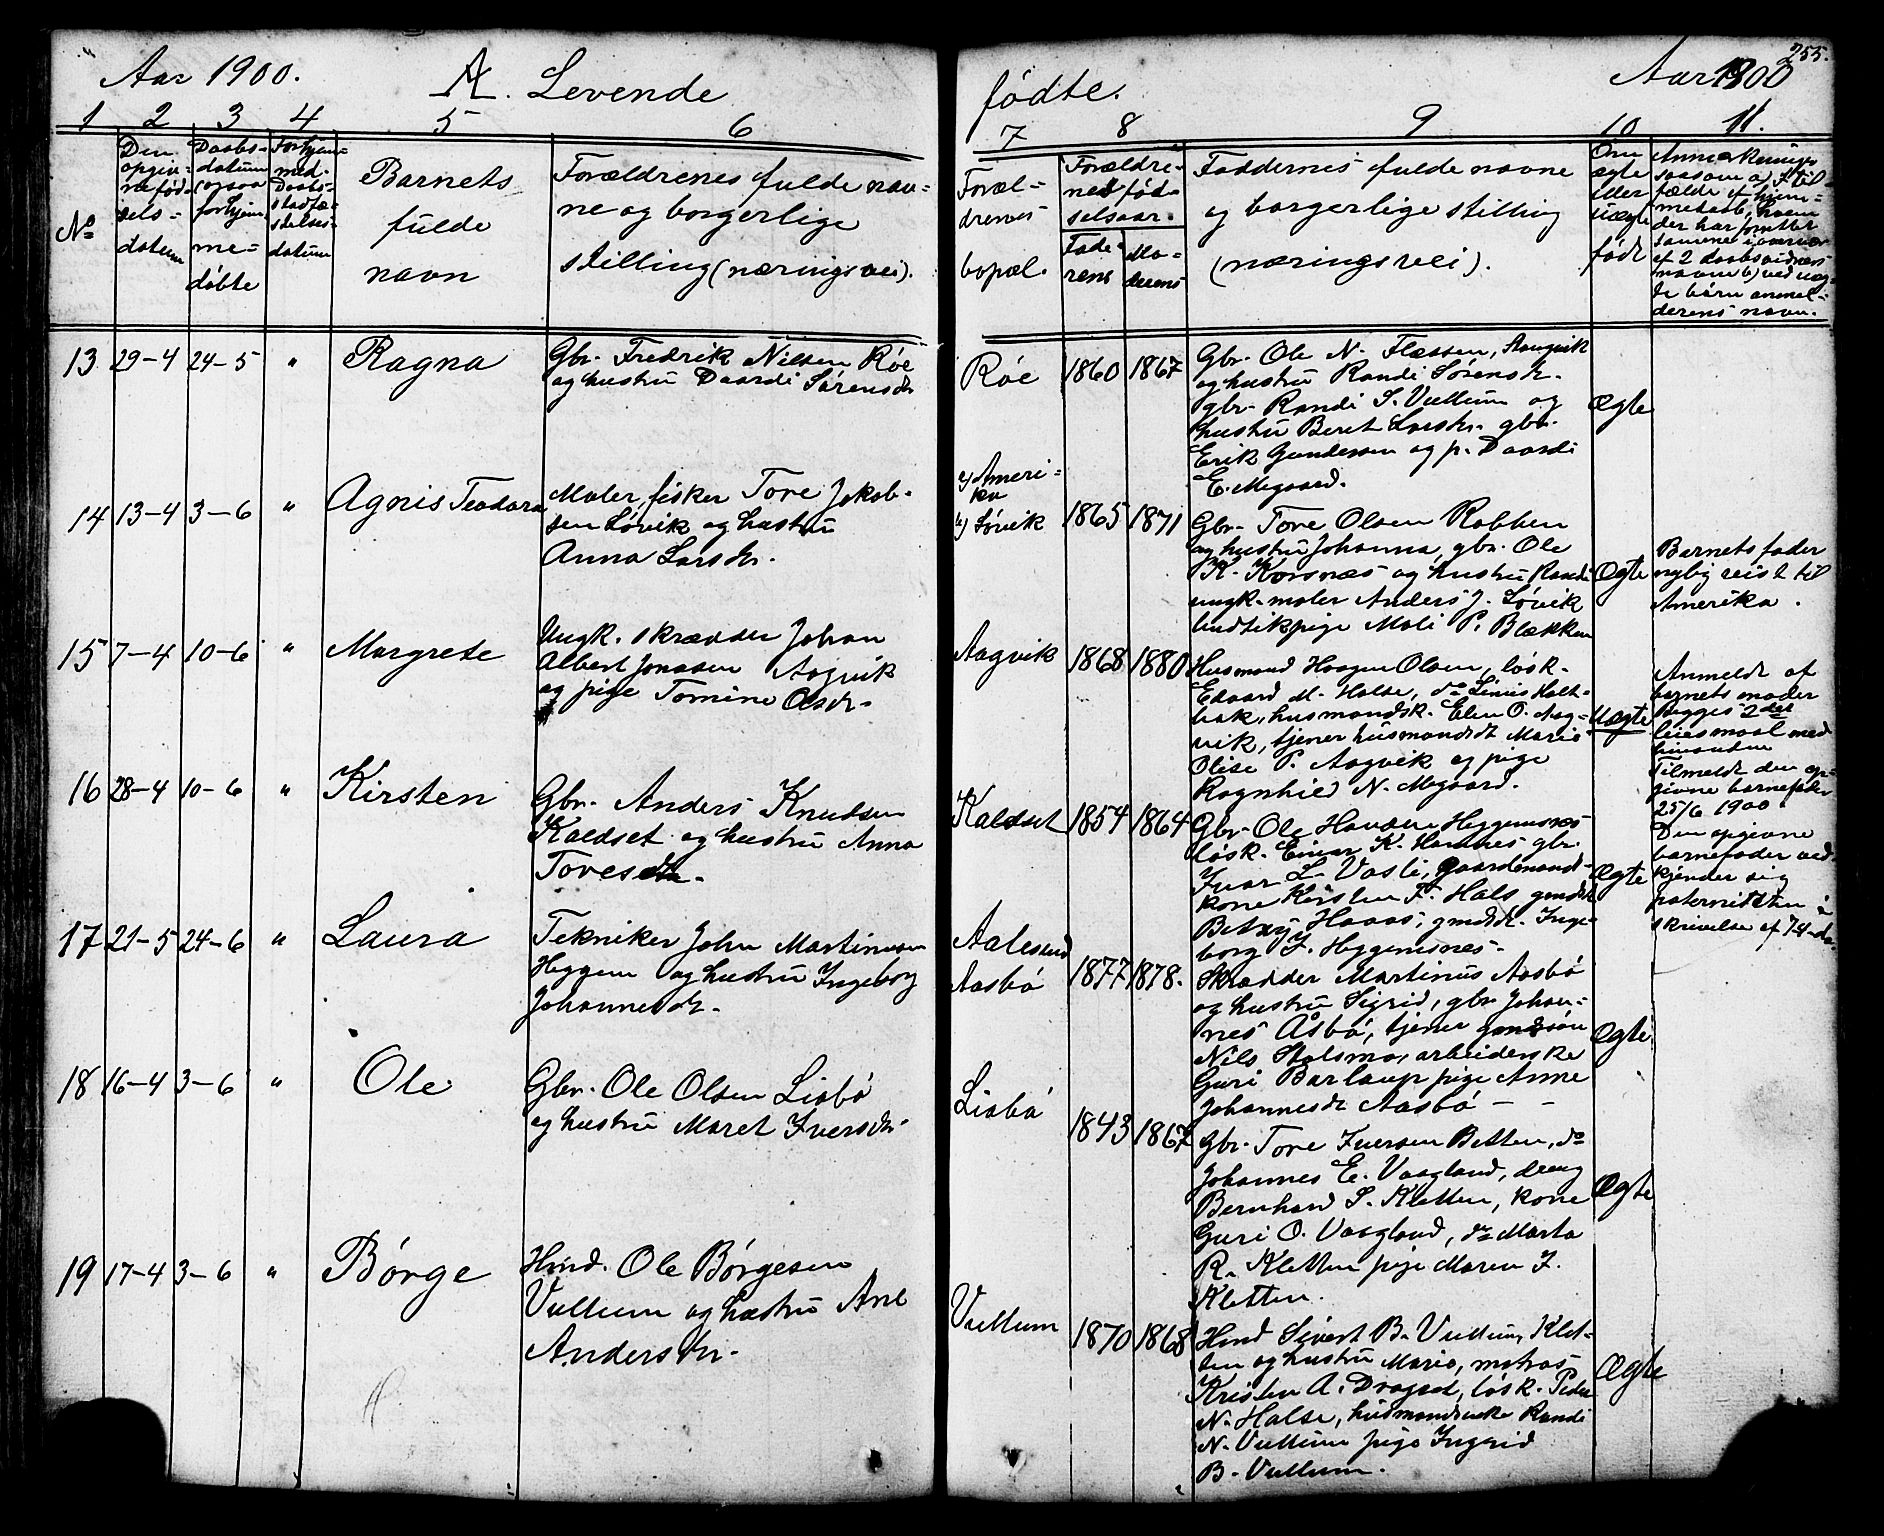 Aar 1900.
A. Levende
fødte.
Aar 1900
255.
1 2 3 4 5 6
7 8 9 10 11.
No
Den
opgiv-
ne fød-
sels-
datum
Daabs-
datum
(ogsaa
for hjem-
me-
døbte
For hjem-
med.
Daabs-
stadfæ-
stelses-
datum
Barnets
fulde
navn
Forældrenes fulde nav-
ne og borgerlige
stilling (næringsvei).
Foræl-
drenes
bopæl.
Forældre-
nes fød-
selsaar.
Fade-
rens
Mo-
derens
Faddernes fulde navne
og borgerlige stilling
(næringsvei).
Om
ægte
eller
uægte
født
Anmærkninger
saasom a) I til-
fælde af hjem-
medaab, hvem
der har forrettet
samme i overvær
af 2 daabsvidners
navne b) ved uæg-
te børn anmel-
derens navn.
13 29-4 24-5 " Ragna
Gbr. Fredrik Nilsen Røe
og hustru Daardi Sørensdtr
Røe 1860 1867
Gbr. Ole N. Flassen, Aangvik
og hustru Randi Sørensdr.
gbr. Randi S. Vullum og
hustru Beret Larsdr. gbr.
Erik Gundersen og p. Daardi
E. Megaard.
Ægte
14 13-4 3-6 " Agnis Teodora
Maler, fisker Tore Jakob-
sen Søvik og hustru
Anna Larsdr.
a) Ameri-
ka
b) Søvik 1865 1871
Gbr. Tore Olsen Robben
og hustru Johanna, gbr. Ole
K. Korsnæs og hustru Randi
ungk. maler Anders J. Søvik
butikpige Mali P. Blækken
Ægte
Barnets fader
nylig reist til
Amerika.
15 7-4 10-6 " Margrete
Ungk. skrædder Johan
Albert Jonassen Aagvik
og pige Tomine Olsdr.
Aagvik 1868 1880
Husmand Haagen Olsen, løsk.
Edvard M. Halse, do Linius Holt-
bak, husmandsk. Elen O. Aag-
vik, tjener husmandsdt Marie
Olise P. Aagvik og pige
Ragnhild N. Megaard.
Uægte
Anmeldt af
barnets moder
Begges 2det
leiermaal med
hinanden
Tilmeldt den op-
givne barnefader
25/6 1900
Den opgivne
barnefader ved-
kjender sig
paterniteten i
skrivelse af 7-8-da.
16 28-4 10-6 " Kirsten
Gbr. Anders Knudsen
Kaldset og hustru Anna
Toresdtr.
Kaldset 1854 1864
Gbr. Ole Hansen Heggemsnes
løsk. Einar K. Hamnes gbr.
Ivar L. Vasli, gaardmand-
kone Kirsten F. Hals gmdsdt
Betsy Haaas, gmdsdt. Inge-
borg I. Heggemsnes.
Ægte
17 21-5 24-6 " Laura
Tekniker John Martinusen
Heggem og hustru Ingeborg
Johannesdr.
Aalesund
Aasbø 1877 1878.
Skrædder Martinus Aasbø
og hustru Sigrid, gbr. Johan-
nes Åsbø, tjener gmdsøn
Nils Stolsmo, arbeiderske
Guri Barlaup pige Anne
Johannesdt Aasbø - -
Ægte
18 16-4 3-6 " Ole
Gbr. Ole Olsen Liabø
og hustru Maret Iversdr.
Liabø 1843 1867
Gbr. Tore Iversen Botten, do
Johannes E. Vaagland, dreng
Bernhard S. Kletten, kone
Guri O. Vaagland, do Marta
R. Kletten pige Maren I.
Kletten.
Ægte
19 17-4 3-6 " Børge
Hmd. Ole Børgesen
Vullum og hustru Ane
Andersdr.
Vullum 1870 1868
Hmd Sivert B. Vullum, Klet-
ten og hustru Marie, matros
Kristen A. Dragset, løsk. Peder
N. Halse, husmandsenke Randi
N. Vullum pige Ingrid
B. Vullum.
Ægte